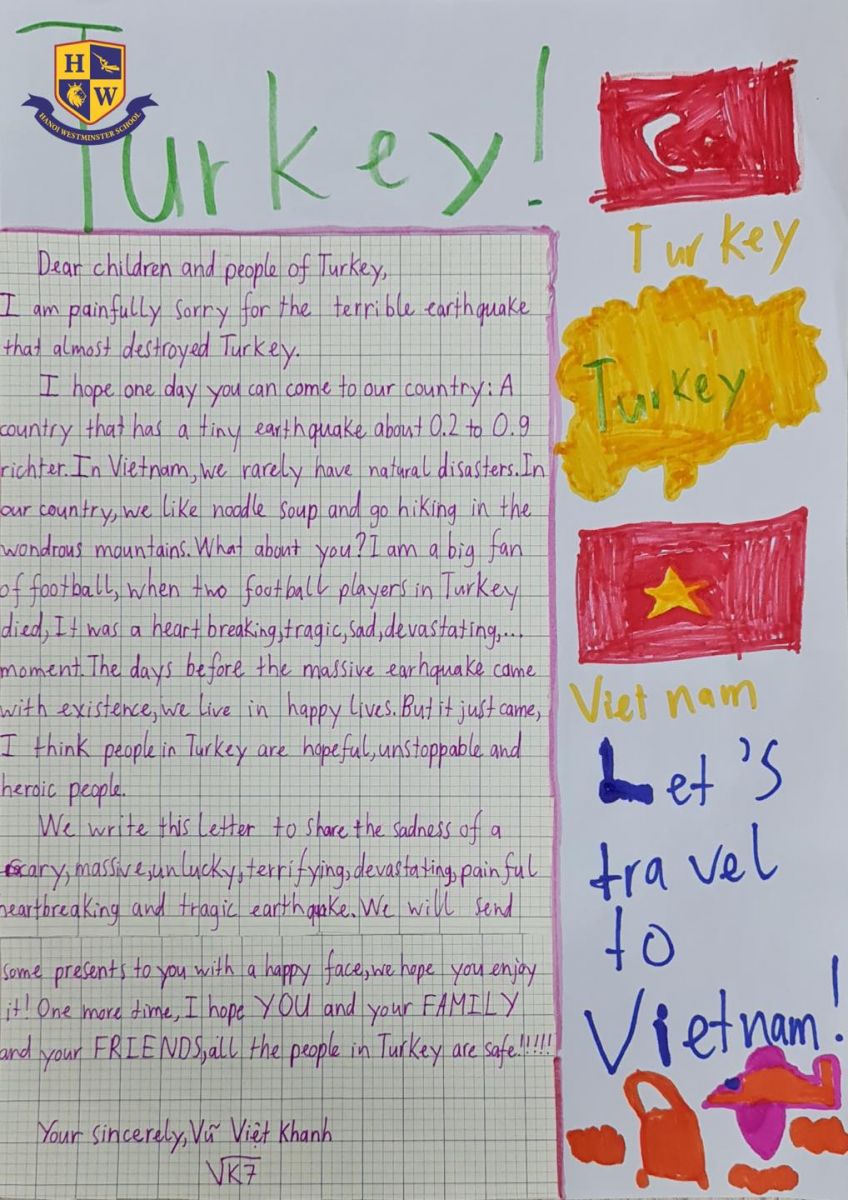 Turkey!
H
W
HANOI WESTMINSTER SCHOOL
Dear children and people of Turkey,
I am painfully sorry for the terrible earthquake
that almost destroyed Turkey.
I hope one day you can come to our country: A
country that has a tiny earthquake about 0.2 to 0.9
richter. In Vietnam, we rarely have natural disasters. In
our country, we like noodle soup and go hiking in the
wondrous mountains. What about you? I am a big fan
of football, when two football players in Turkey
died, It was a heart breaking, tragic, sad, devastating,...
moment. The days before the massive earhquake came
with existence, we live in happy lives. But it just came,
I think people in Turkey are hopeful, unstoppable and
heroic people.
We write this letter to share the sadness of a
scary, massive, unlucky, terrifying, devastating, painful
heartbreaking and tragic earthquake. We will send
some presents to you with a happy face, we hope you enjoy
it! One more time, I hope YOU and your FAMILY
and your FRIENDS, all the people in Turkey are safe!!!!!
Your sincerely, Vũ Việt Khanh
VK7
Turkey
Turkey
Viet nam
Let's
travel
to
Vietnam!